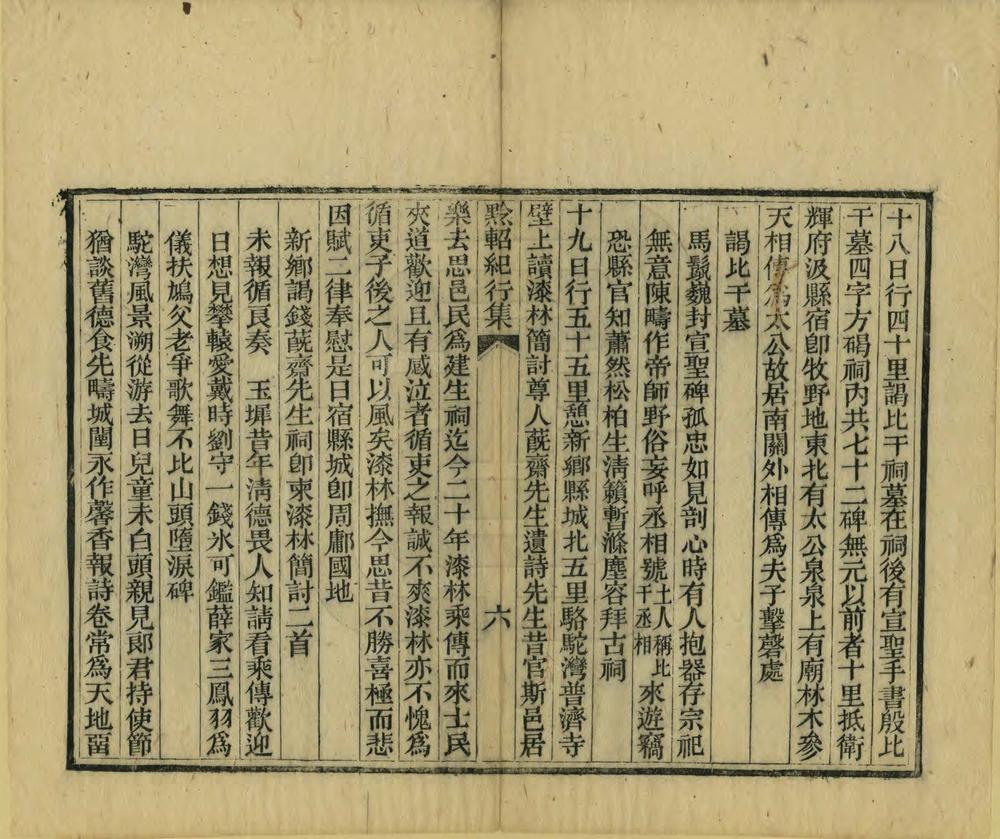 十八日行四十里謁比干祠墓在祠後有宣聖手書殷比
干墓四字方碣祠內共七十二碑無元以前者十里抵衛
輝府汲縣宿卽牧野地東北有太公泉泉上有廟林木參
天相傳爲太公故居南關外相傳爲夫子擊磬處
謁比干墓
馬鬣巍封宣聖碑孤忠如見剖心時有人抱器存宗祀
無意陳疇作帝師野俗妄呼丞相號土人稱比干丞相來遊竊
恐縣官知蕭然松柏生清籟暫滌塵容拜古祠
十九日行五十五里憩新鄉縣城北五里駱駝灣普濟寺
壁上讀漆林簡討尊人蔇齋先生遺詩先生昔官斯邑居
黔軺紀行集
六
樂去思邑民爲建生祠迄今二十年漆林乘傳而來士民
夾道歡迎且有感泣者循吏之報誠不爽漆林亦不愧爲
循吏子後之人可以風矣漆林撫今思昔不勝喜極而悲
因賦二律奉慰是日宿縣城卽周鄘國地
新鄉謁錢蔇齋先生祠卽柬漆林簡討二首
未報循良奏 玉墀昔年淸德畏人知請看乘傳歡迎
日想見攀轅愛戴時劉守一錢氷可鑑薛家三鳳羽爲
儀扶鳩父老爭歌舞不比山頭墮淚碑
駝灣風景溯從游去日兒童未白頭親見郞君持使節
猶談舊德食先疇城闉永作馨香報詩卷常爲天地畱